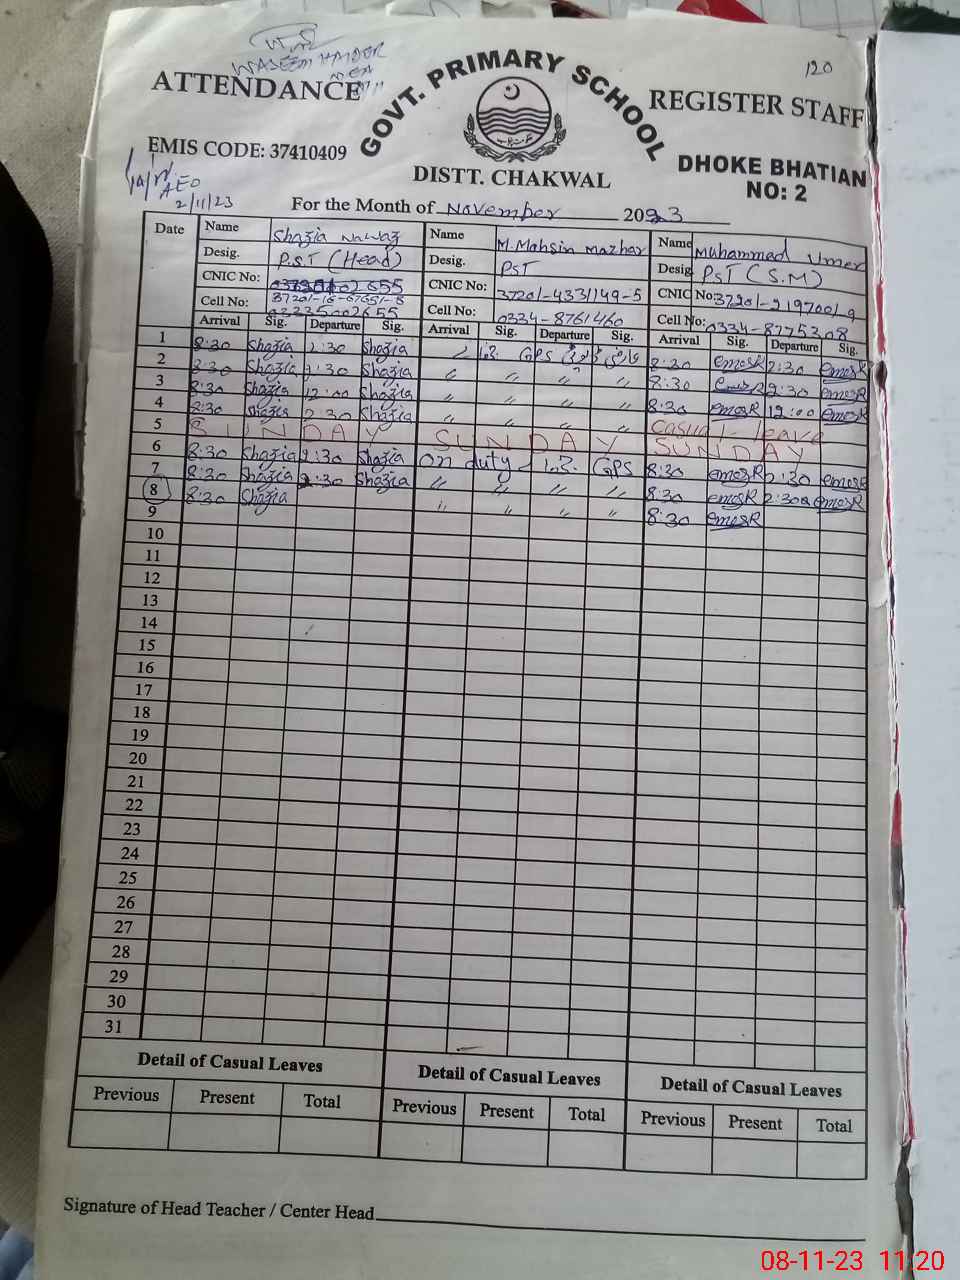 WASEEM HAIDER
MEA
120
ATTENDANCE
GOVT. PRIMARY SCHOOL
REGISTER STAFF
EMIS CODE: 37410409
DISTT. CHAKWAL
DHOKE BHATIAN
NO: 2
AEO
2/11/23
For the Month of November 2023
Date Name Shazia Nawaz Name M.Mohsin mazhar Name Muhammad Umer
Desig. P.S.T (Head) Desig. PST Desig PST (S.M)
CNIC No: CNIC No: 37201-4331149-5 CNIC No: 37201-2197001-9
Cell No: 03335002655 Cell No: 0334-8761460 Cell No: 0334-8775308
Arrival Sig. Departure Sig. Arrival Sig. Departure Sig. Arrival Sig. Departure Sig.
1 8:30 Shazia 2:30 Shazia GPS 8:30 2:30
2 8:30 Shazia 2:30 Shazia " " " " 8:30 2:30
3 8:30 Shazia 12:00 Shazia " " " " 8:30 12:00
4 8:30 Shazia 2:30 Shazia " " " " Casual leave
5 SUNDAY SUNDAY SUNDAY
6 8:30 Shazia 2:30 Shazia On duty GPS 8:30 2:30
7 8:30 Shazia 2:30 Shazia " " " " 8:30 2:30
8 8:30 Shazia " " " " 8:30
9
10
11
12
13
14
15
16
17
18
19
20
21
22
23
24
25
26
27
28
29
30
31
Detail of Casual Leaves Detail of Casual Leaves Detail of Casual Leaves
Previous Present Total Previous Present Total Previous Present Total
Signature of Head Teacher / Center Head
08-11-23 11:20